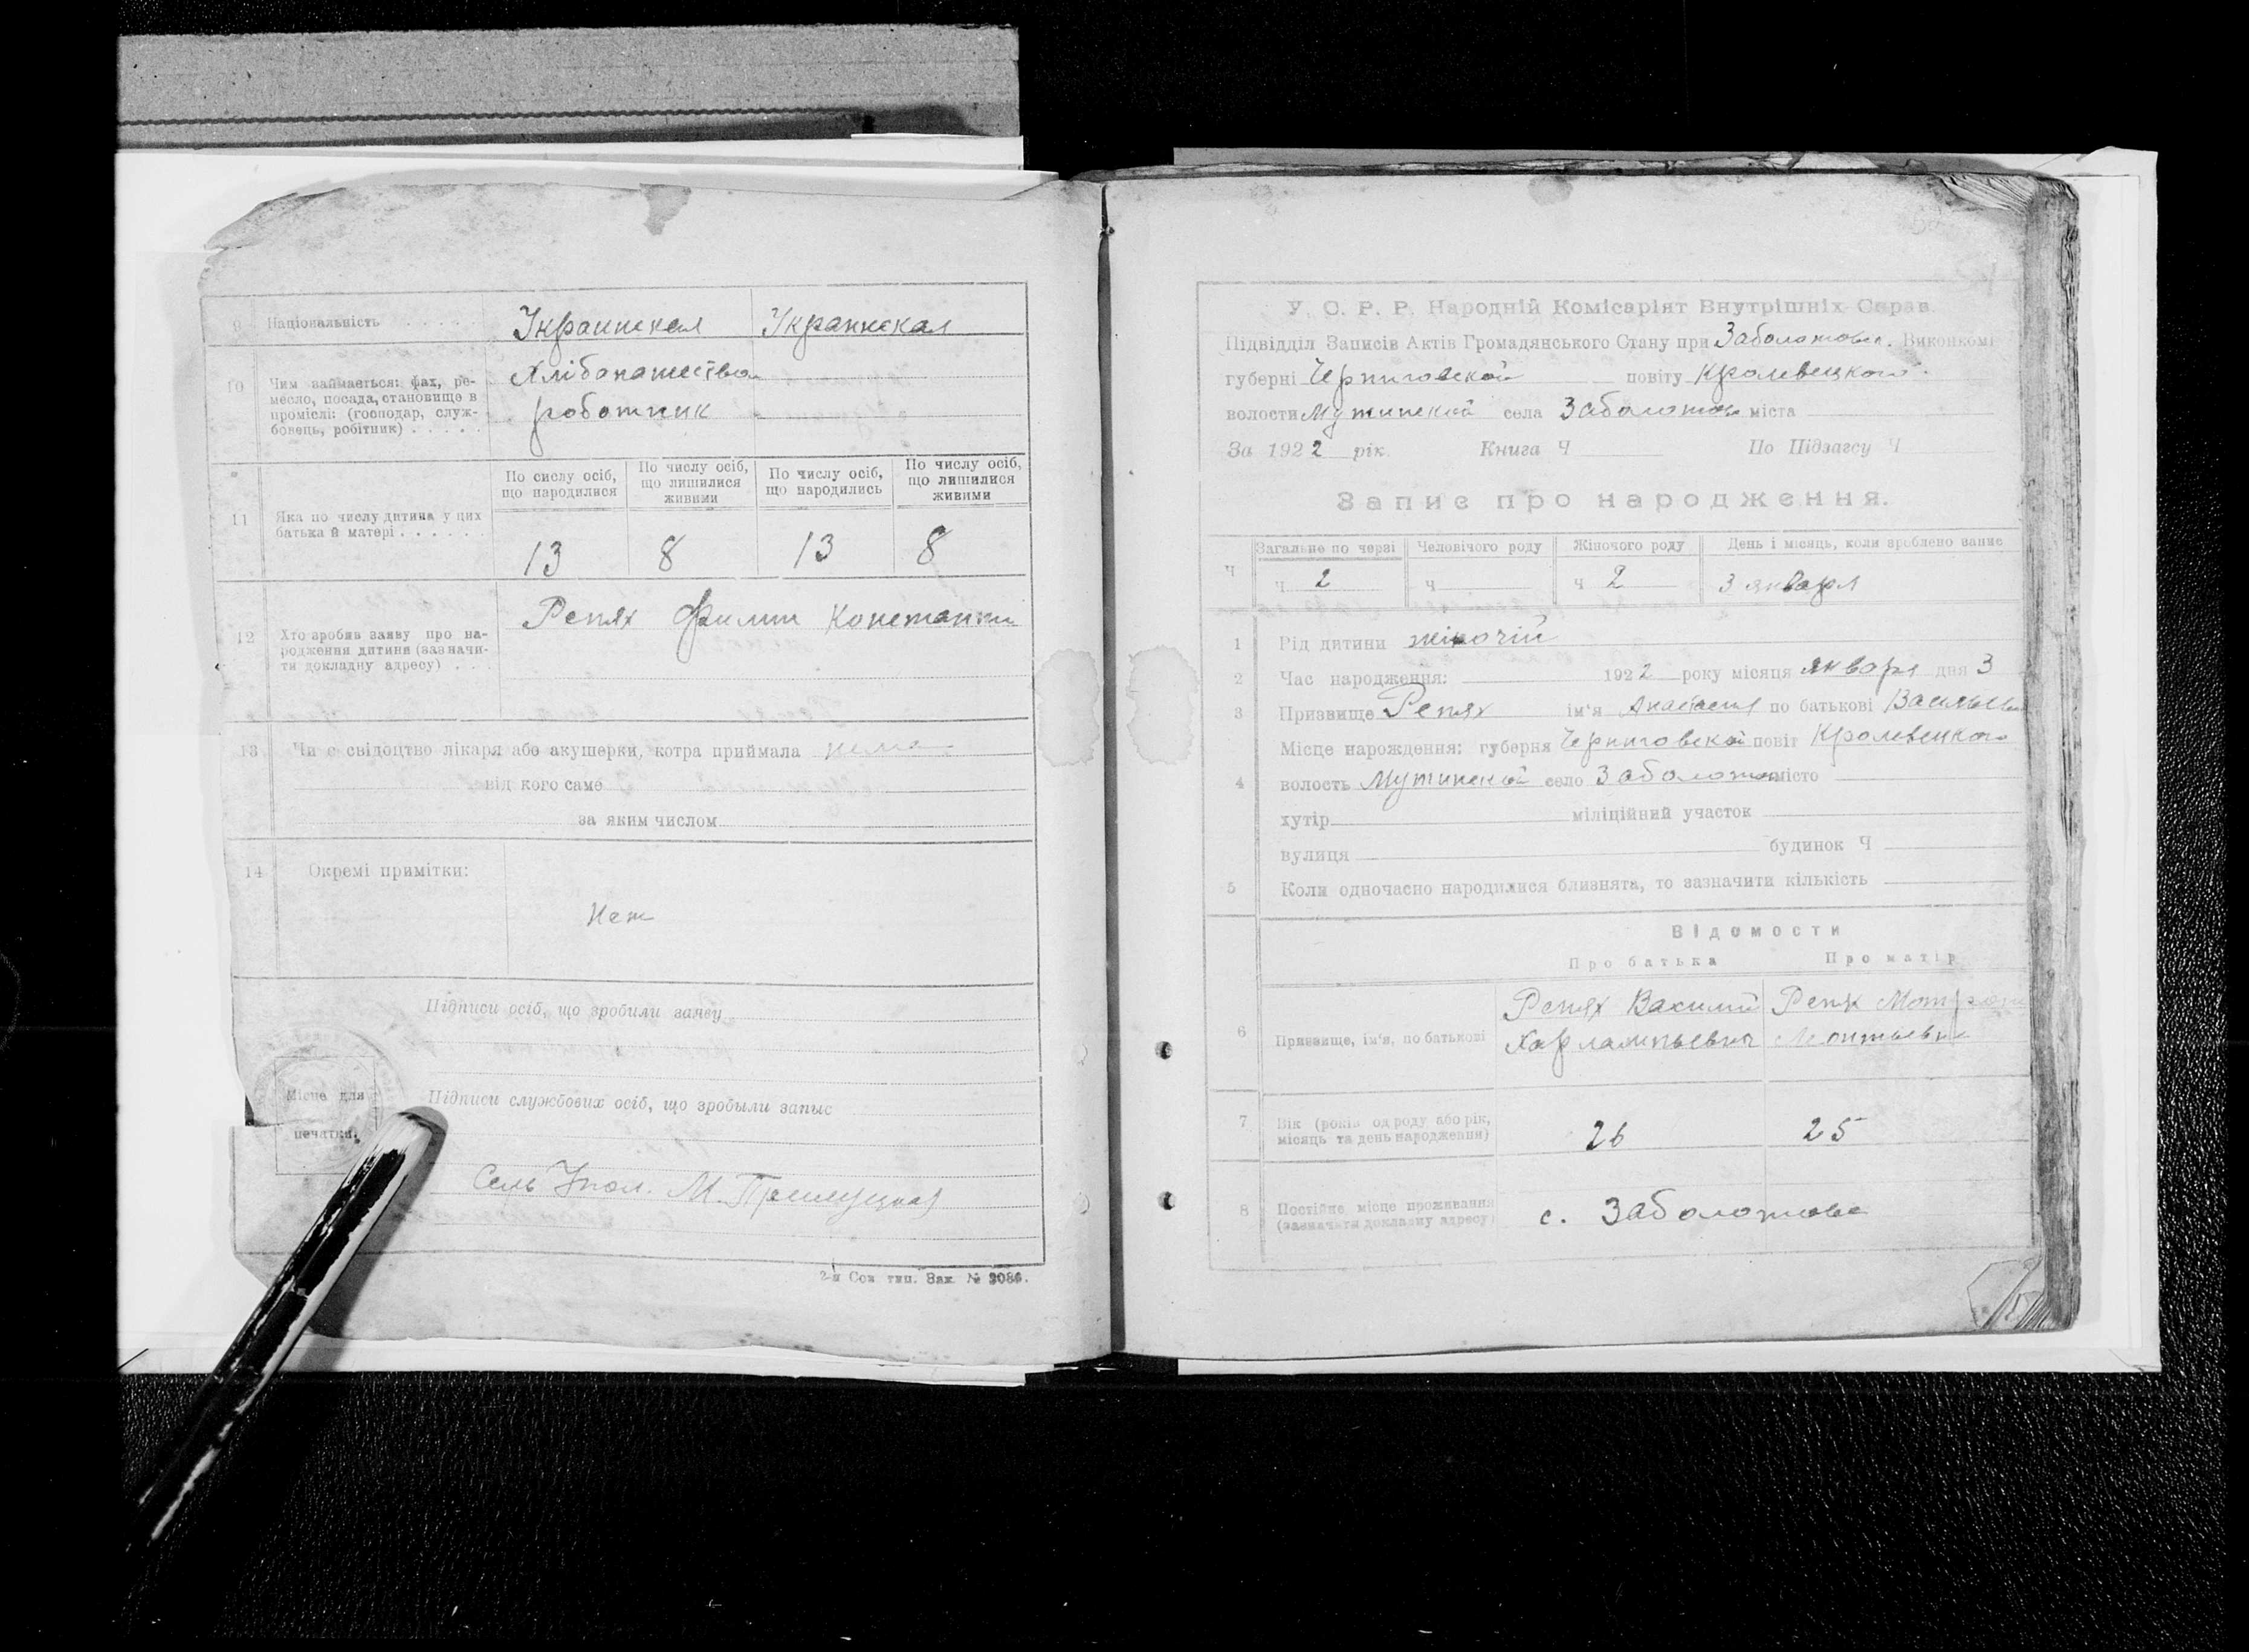 9 Національність Украинская Украинская
10 Чим займається: фах, ре-
месло, посада, становище в
проміслі: (господар, служ-
бовець, робітник)
Хлібопашество
роботник
11 Яка по числу дитина у цих
батька й матері
По сислу осіб,
що народилися
По числу осіб,
що лишилися
живими
По числу осіб,
що народились
По числу осіб,
що лишилися
живими
13 8 13 8
12 Хто зробив заяву про на-
родження дитини (зазначи-
ти докладну адресу)
Репях Филип Константи
13 Чи є свідоцтво лікаря або акушерки, котра приймала нема
від кого саме
за яким числом
14 Окремі примітки:
Нет
Підписи осіб, що зробили заяву
Місце для
печатки.
Підписи службових осіб, що зробыли запыс
Сель Упол. М.
2-я Сов тип. Зак. № 3086.
У. С. Р. Р. Народній Комісаріят Внутрішніх Справ.
Підвідділ Записів Актів Громадянського Стану при Заболотовск. Виконкомі
губерні Черниговской повіту Кролевецкого
волости Мутинской села Заболотово міста
За 1922 рік Книга Ч По Підзагсу Ч
Запис про народження.
Ч
Загальне по черзі Человічого роду Жіночого роду День і місяць, коли зроблено запис
Ч 2 Ч Ч 2 3 января
1 Рід дитини жіночій
2 Час народження: 1922 року місяця января дня 3
3 Призвище Репях ім'я Анастасия по батькові Васильев
Місце народження: губерня Черниговской повіт Кролевецкого
4 волость Мутинской село Заболотово місто
хутір міліційний участок
вулиця будинок Ч
5 Коли одночасно народилися близнята, то зазначити кількість
Відомости
Про батька Про матір
6 Призвище, ім'я, по батькові
Репях Василий
Харлампьевич
Репях Мотрона
Леонтьевна
7 Вік (років од роду або рік,
місяць та день народження)
26 25
8 Постійне місце проживання
(зазначити докладну адресу)
с. Заболотово